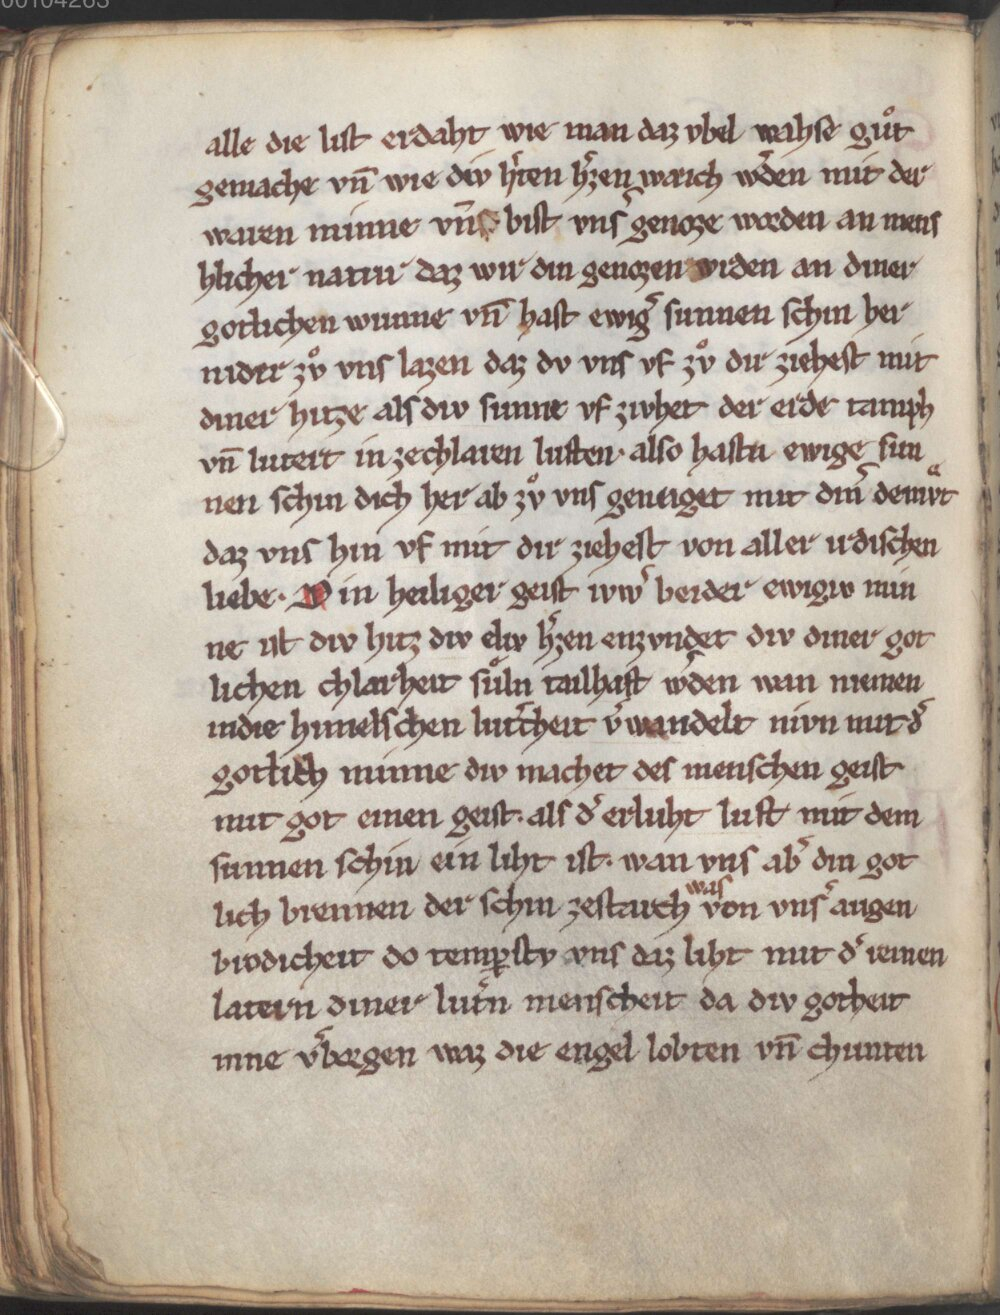 00104263
alle die list erdaht wie man daz vbel wahse gůt
gemache vn̄ wie div h̾ten h̾zen warich w̾den mit der
waren minne vn̄ bist vns̾ genoze worden an mens
hlicher natur daz wir din genozen wrden an diner
gotlichen wunne vn̄ hast ewig̾ sunnen schin her
nider zv̊ vns lazen daz dv vns vf zv̊ dir ziehest mit
diner hitze als div sunne vf zivhet der erde tamph
vn̄ lutert in ze chlaren luften· also hastu ewige sun
nen schin dich her ab zv̊ vns geneiget mit din̾ demv̊t
daz vns hin vf mit dir ziehest von aller irdischen
liebe· Din heiliger geist iwˀ beider ewigiv min
ne ist div hitz div eliv h̾zen enzvndet div diner got
lichen chlarheit sůln tailhaft w̾den wan niemen
in die himelschen lut̾cheit v̾wandelt nivn mit d̾
gotlich minne div machet des menschen geist
mit got einen geist· als d̾ erluht luft mit dem
sunnen schin ein liht ist· wan vns ab̾ din got
lich brennen der schin ze starch was von vns̾ augen
brodicheit do temꝑstv vns daz liht mit d̾ reinen
latern diner lut̾n menscheit da div gotheit
inne v̾borgen waz die engel lobten vn̄ chunten